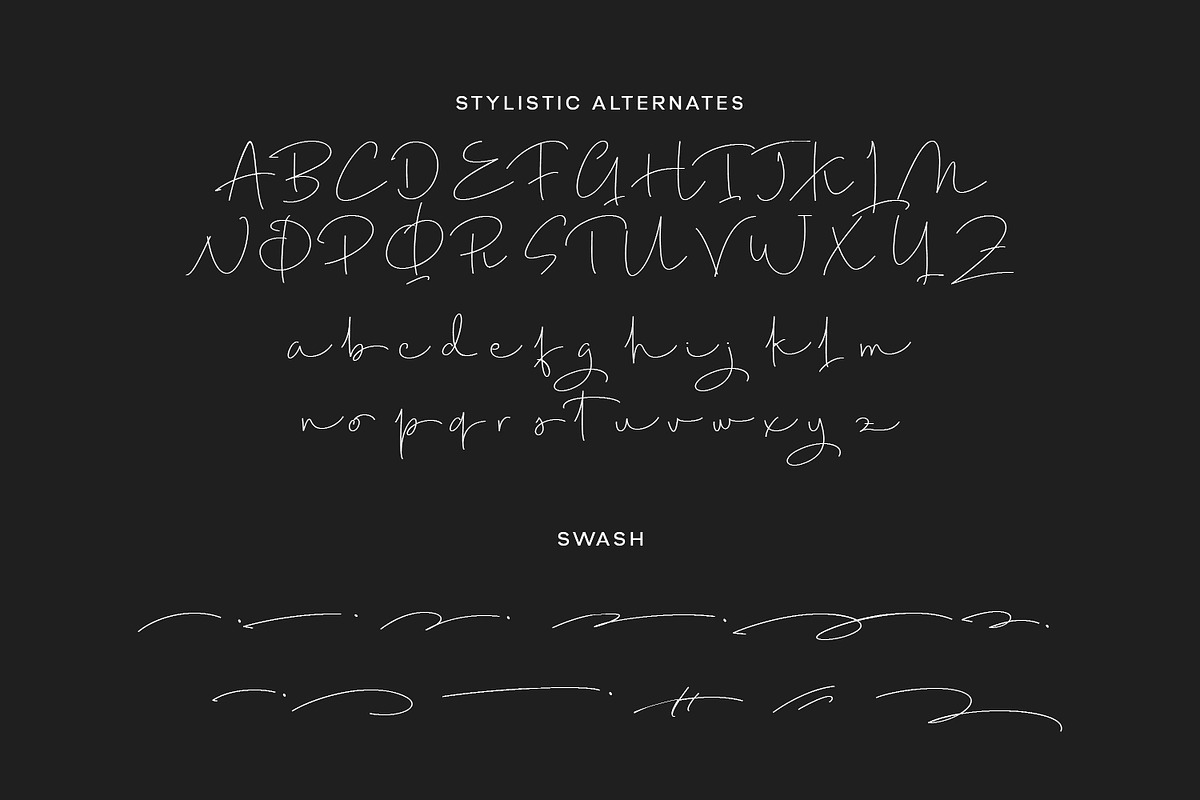 STYLISTIC ALTERNATES
ABCDEFGHIJKLM
NOPQRSTUVWXYZ
abcdefghijklm
nopqrstuvwxyz
SWASH